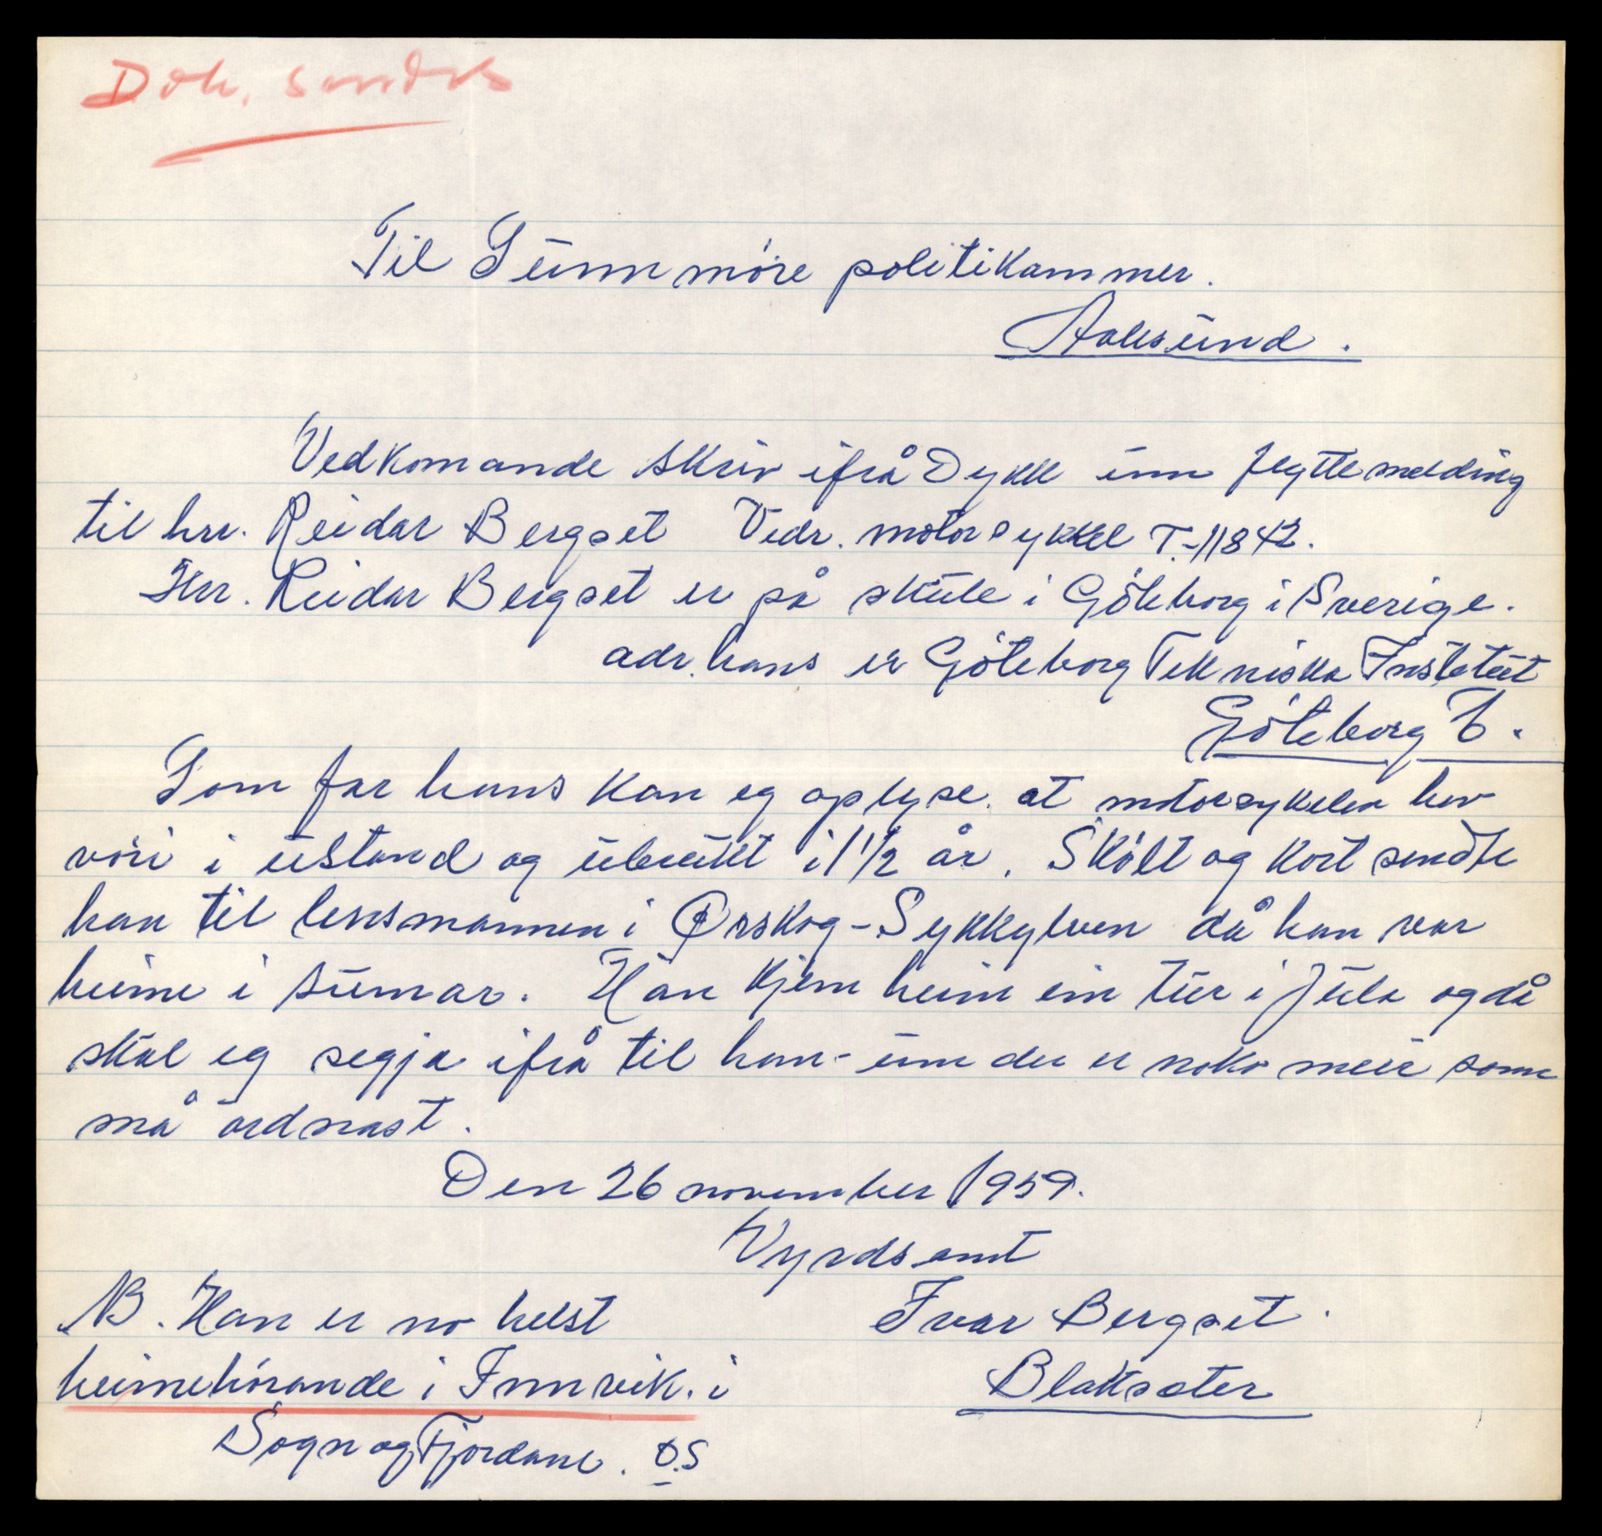 Dok. sendt
Til Sunnmöre politikammer.
Aalesund.
Vedkomande skriv ifrå Dykk um flyttemelding
til hrr. Reidar Bergset Vedr. motorsykkel T.-11842.
Hrr. Reidar Bergset er på skule i Göteborg i Sverige.
adr. hans er Göteborg Tekniska Institut
Göteborg C.
Som far hans kan eg oplyse at motorsykelen hev
vöri i ustand og ubrukt i 1 1/2 år. Skölt og kort sendte
han til lensmannen i Ørskog-Sykkylven då han var
heime i sumar. Han kjem heim ein tur i Jula og då
skal eg segja ifrå til han - um der er noko meir som
må ordnast.
Den 26 november 1959.
Vyrdsamt
NB. Han er no helst
Ivar Bergset.
heimehörande i Innvik. i
Blakseter
Sogn og Fjordane. D.S